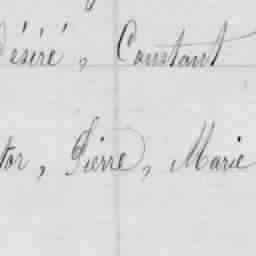 Désiré, Constant
tor, Pierre, Marie